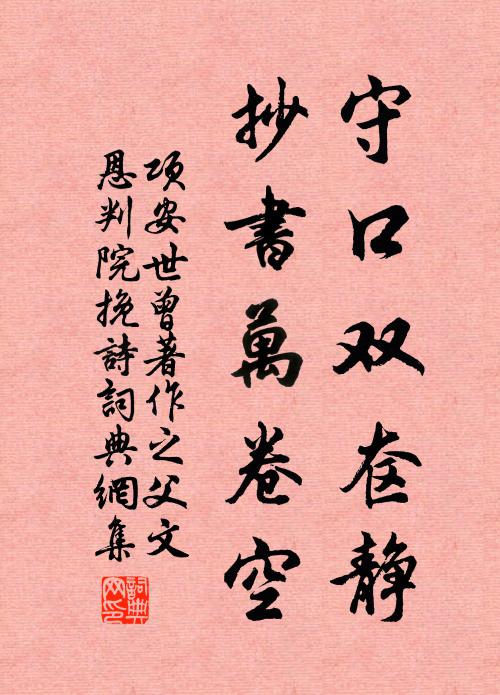 守口双静
抄書萬卷空
項安世曾著作之父文
恩判院挽詩詞典網集
詞典
网印